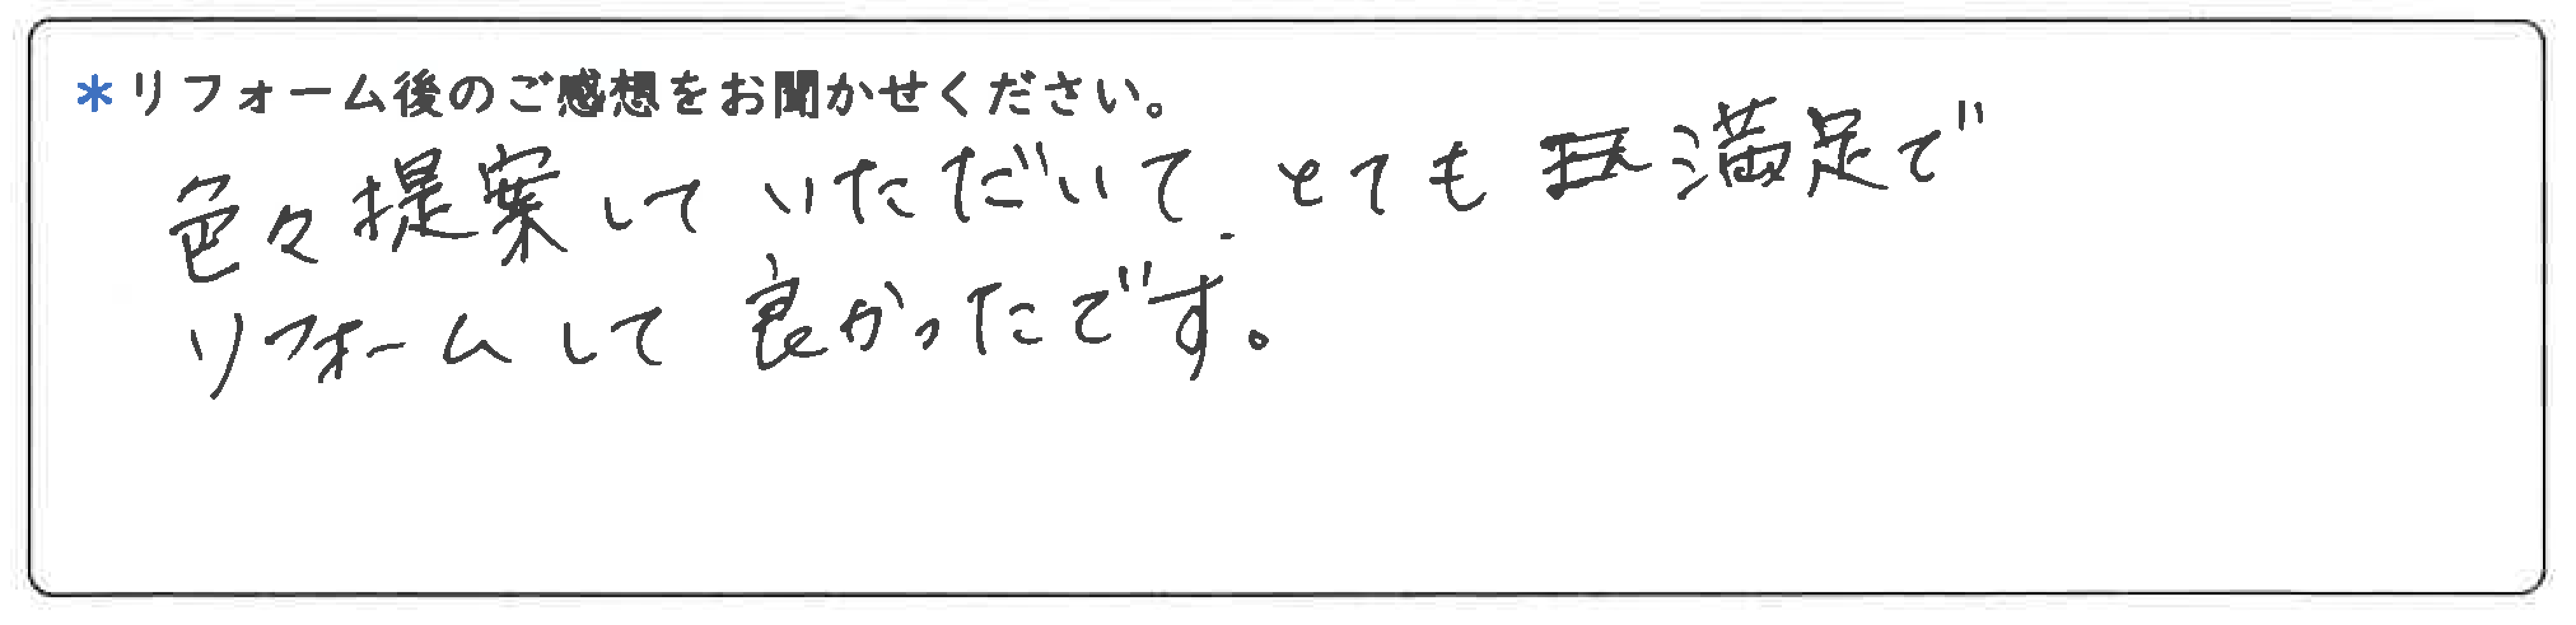 *リフォーム後のご感想をお聞かせください。
色々提案していただいて とても 満足で
リフォームして 良かったです。